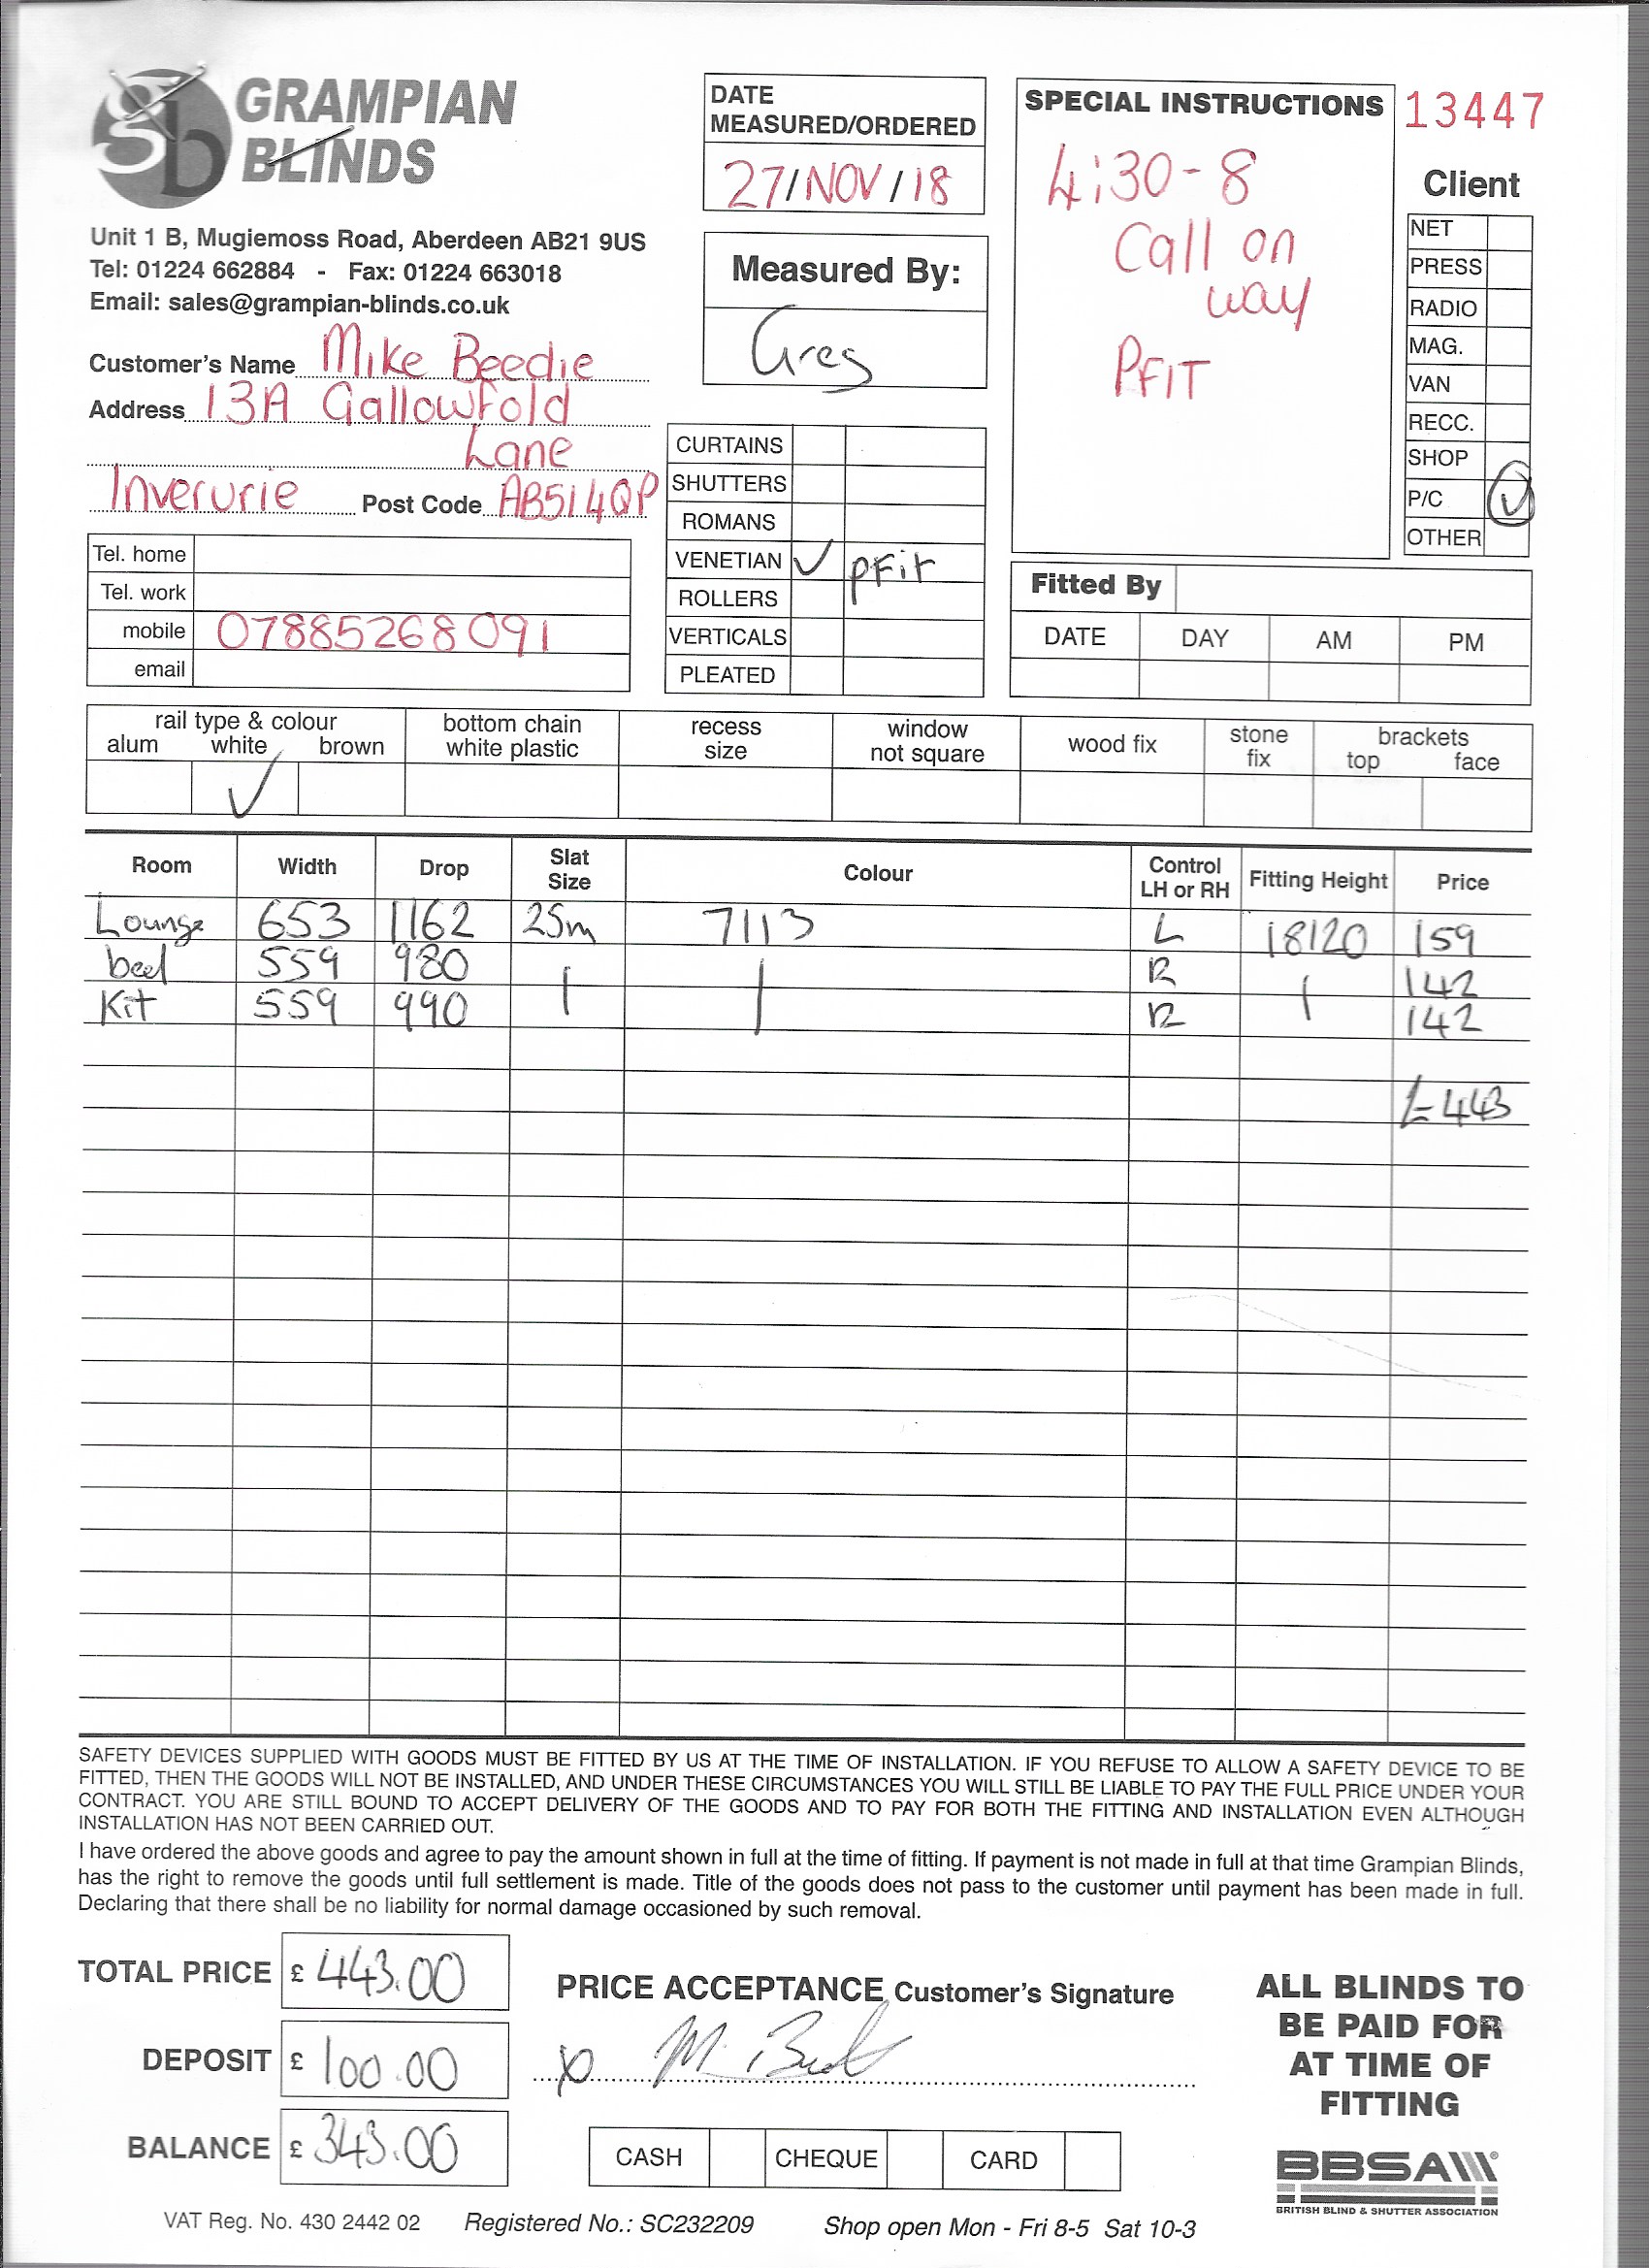 GRAMPIAN
BLINDS
Unit 1 B, Mugiemoss Road, Aberdeen AB21 9US
Tel: 01224 662884 - Fax: 01224 663018
Email: sales@grampian-blinds.co.uk
Customer's Name Mike Beedie
Address 13A Gallowfold
Lane
Inverurie Post Code AB51 4QP
Tel. home
Tel. work
mobile 07885268091
email
DATE
MEASURED/ORDERED
27/NOV/18
Measured By:
Greg
CURTAINS
SHUTTERS
ROMANS
VENETIAN ✓ PFit
ROLLERS
VERTICALS
PLEATED
SPECIAL INSTRUCTIONS
4:30-8
Call on
way
PFIT
13447
Client
NET
PRESS
RADIO
MAG.
VAN
RECC.
SHOP
P/C ✓
OTHER
Fitted By
DATE DAY AM PM
rail type & colour
alum white brown
✓
bottom chain
white plastic
recess
size
window
not square
wood fix
stone
fix
brackets
top face
Room Width Drop Slat Size Colour Control LH or RH Fitting Height Price
Lounge 653 1162 25m 7113 L 18120 159
bed 559 980 | | R | 142
Kit 559 990 R 142
£443
SAFETY DEVICES SUPPLIED WITH GOODS MUST BE FITTED BY US AT THE TIME OF INSTALLATION. IF YOU REFUSE TO ALLOW A SAFETY DEVICE TO BE
FITTED, THEN THE GOODS WILL NOT BE INSTALLED, AND UNDER THESE CIRCUMSTANCES YOU WILL STILL BE LIABLE TO PAY THE FULL PRICE UNDER YOUR
CONTRACT. YOU ARE STILL BOUND TO ACCEPT DELIVERY OF THE GOODS AND TO PAY FOR BOTH THE FITTING AND INSTALLATION EVEN ALTHOUGH
INSTALLATION HAS NOT BEEN CARRIED OUT.
I have ordered the above goods and agree to pay the amount shown in full at the time of fitting. If payment is not made in full at that time Grampian Blinds,
has the right to remove the goods until full settlement is made. Title of the goods does not pass to the customer until payment has been made in full.
Declaring that there shall be no liability for normal damage occasioned by such removal.
TOTAL PRICE £ 443.00
DEPOSIT £ 100.00
BALANCE £ 343.00
PRICE ACCEPTANCE Customer's Signature
x M.
CASH CHEQUE CARD
ALL BLINDS TO
BE PAID FOR
AT TIME OF
FITTING
BBSA
BRITISH BLIND & SHUTTER ASSOCIATION
VAT Reg. No. 430 2442 02 Registered No.: SC232209 Shop open Mon - Fri 8-5 Sat 10-3